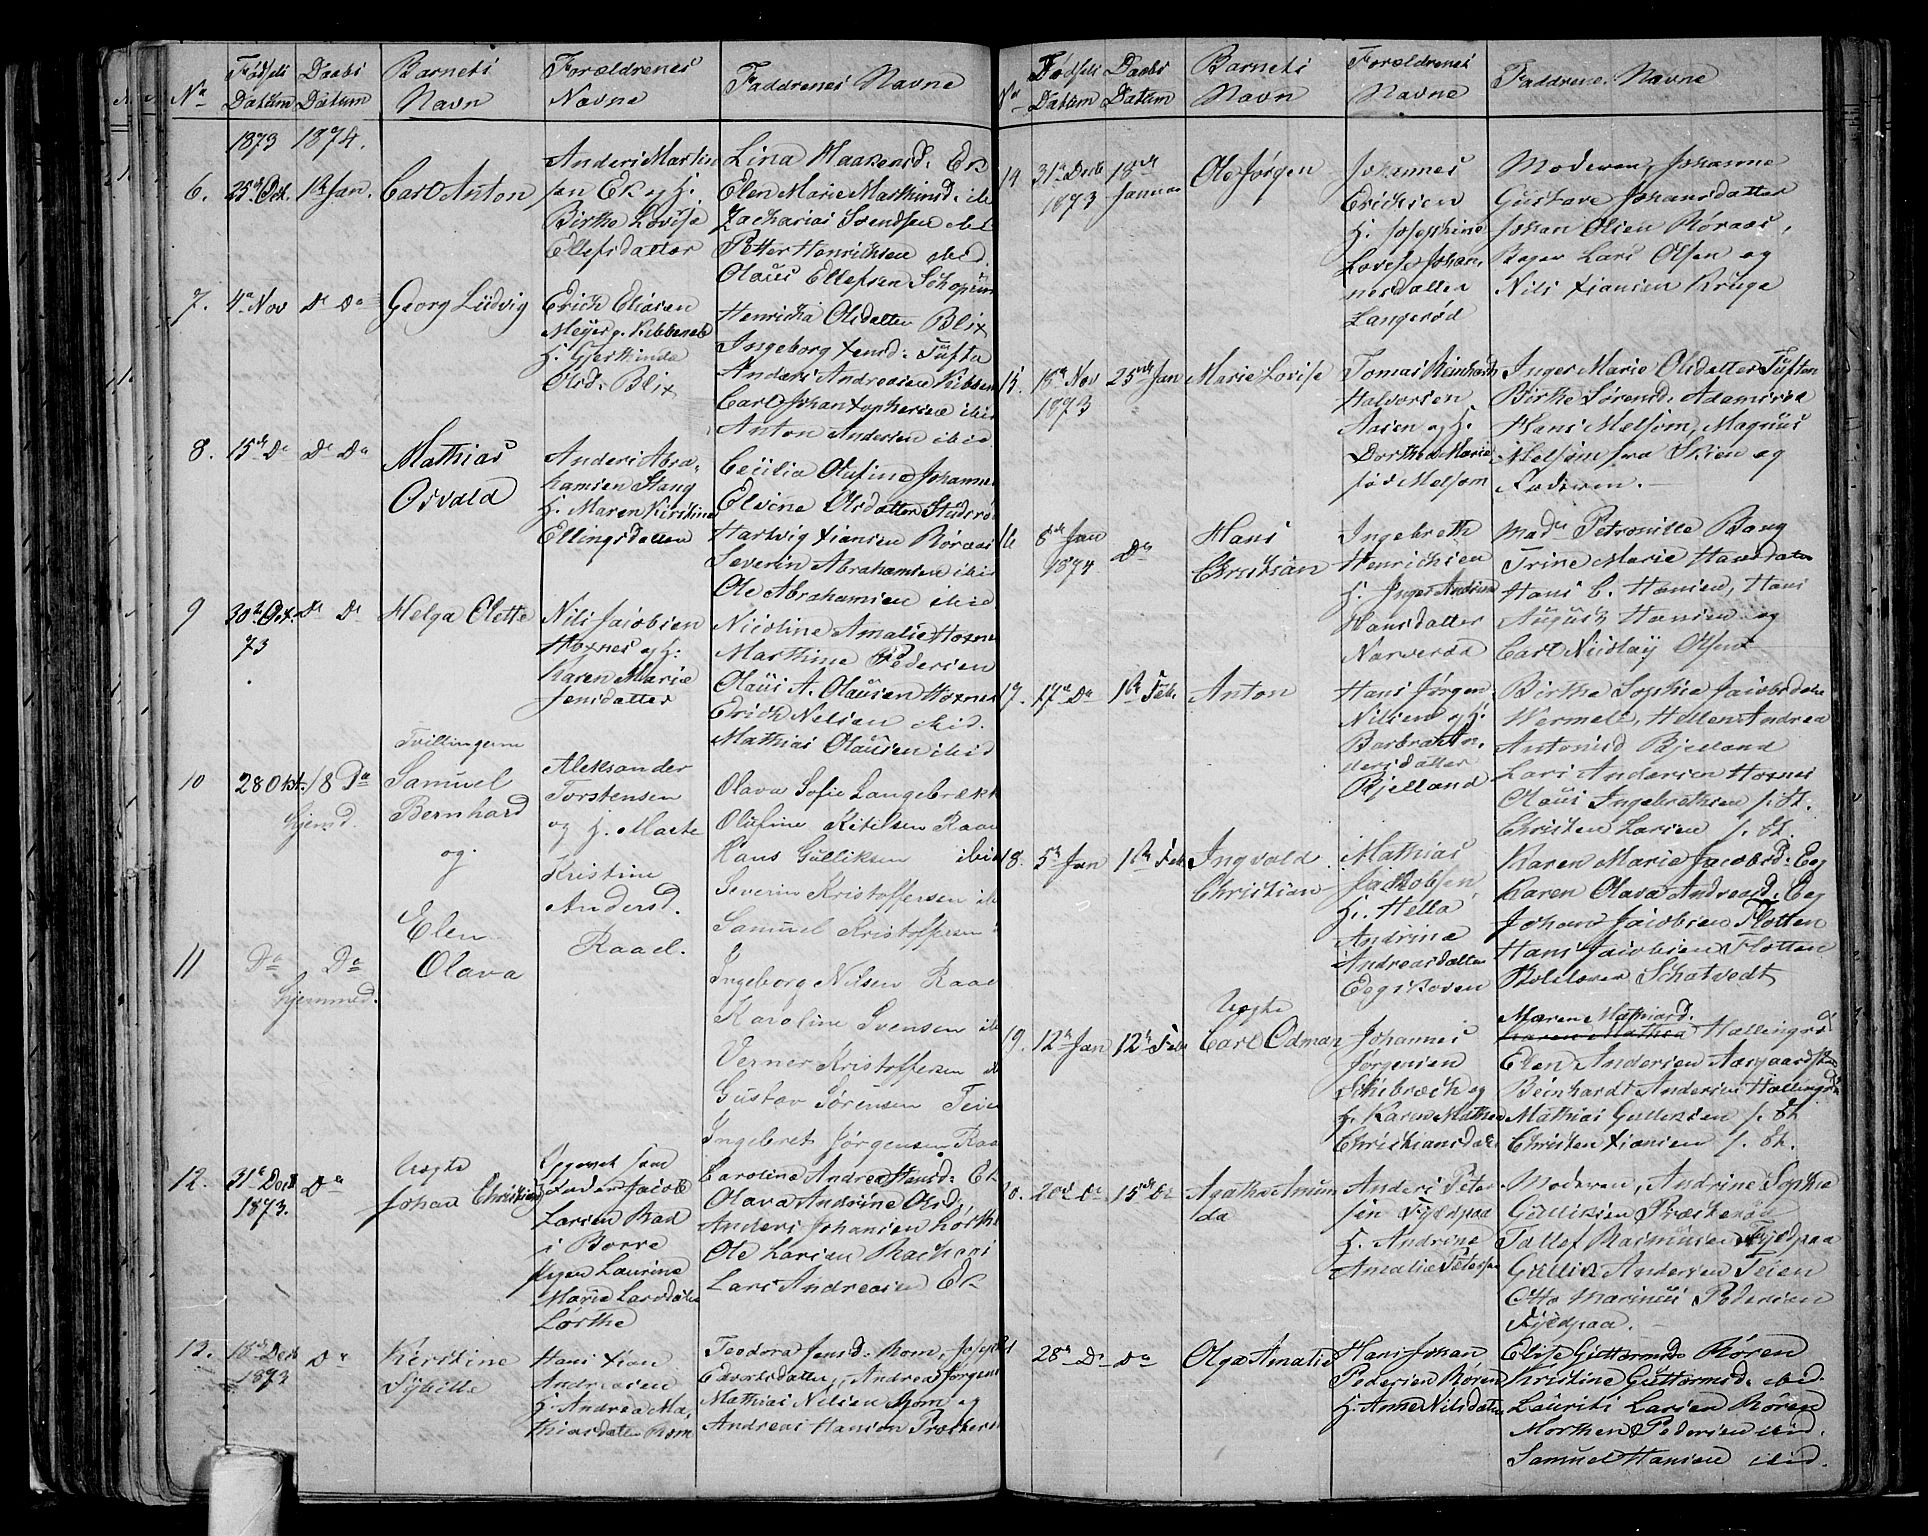 No
Fødsels Datum
Daabs Datum
Barnets Navn
Forældrenes Navne
Faddrenes Navne
1873 1874.
6. 1te Jan. Carl Anton
Anders Martin
sen Ek og H.
Birthe Lovise
Ellefsdatter
Lina Haakensd: Ek
Elen Marie Mathiasd: ibid
Zacharias Svendsen ibid
Petter Henrichsen ibid.
Olaus Ellefsen
7. 4de Nov Do Do Georg Ludvig
Erich Eliasen
H. Gjerthinda
Olsd: Blix
Henricka Olsdatter Blix
Ingeborg Xensd: Tufte
Anders Andreasen
Carl Johan Xophersen ibid
Anton Andersen ibid
8. 15de Do Do Do
Mathias
Osvald
Anders Abra-
hamsen Stang
H. Maren Kirstine
Ellingsdatter
Cecilia Olufine Johanne
Elvine Olsdatter
Hartvig Xiansen Røraas
Severin Abrahamsen ibid
Ole Abrahamsen ibid
9 30te Oct. Do Do Helga Olette
73
Nils Jacobsen
Hoxnes og H.
Karen Marie
Jensdatter
Nicoline Amalie Hoxnes
Marthine Pedersen
Olaus A. Olausen Hoxnes
Erich Nilsen ibid.
Mathias Olausen ibid
Tvillingerne
10 28 Okt. 18 Do
Hjemd.
Samuel
Bernhard
og
Aleksander
Torstensen
og H. Marte
Kristine
Andersd.
Raael.
Olava Sofie Langebrekk
Olufine Ketilsen Raae
Hans Gulliksen ibid
Severin Kristoffersen ib
Samuel Kristoffersen
11 Do Do
Hjemmed.
Elen
Olava
Ingeborg Nilsen Raae
Karoline Svensen ib
Verner Kristoffersen ib
Gustav Sørensen Teien
Ingebret Jørgensen Raae
12. 31te Decb Do
1873.
Uægte
Johan Christian
Opgivet som
Fader Jacob
Larsen Rød
i Borre
Pigen Laurine
Marie Larsdatter
Lørthe
Caroline Andrea Hansd: Ek
Olava Andrine Olsd:
Anders Johansen Lørthe
Ole Larsen
Lars Andreasen Ek
13. 18de Decb Do
1873
Kirstine
Sybille
Hans Xian
Andreasen
H. Andrea Ma-
thiasdatter Rom
Teodora Jensd: Rom,
Edvardsdatter, Andrea Jørgens
Mathias Nilsen Rom og
Andreas Hansen
No
Fødsels Datum
Daabs Datum
Barnets Navn
Forældrenes Navne
Faddrene: Navne
14 31te Decb 18de
1873 Januar
Ole Jørgen
Johannes
Erichsen
H. Josephine
Lovise Johan-
nesdatter
Langerød
Moderen, Johanne
Gustave Johansdatter
Johan Olsen Røraas,
Bager Lars Olsen og
Nils Xiansen Krüge
15. 15de Nov 25de Jan Marie Lovise
1873
Tomas Reinhard
Halvorsen
Aasen og H.
Dorthea Marie
fød Melsom
Inger Marie Olsdatter Tufton
Birthe Sørensd:
Hans Melsom, Magnus
Melsom fra Skien og
Faderen. -
16 8de Jan Do
1874
Hans
Christian
Ingebreth
Henrichsen
H. Inger Andrine
Hansdatter
Narverød
Made Petronille Bang
Trine Marie Hansdatter
Hans C. Hansen, Hans
August Hansen og
Carl Nicolay Olsen
17. 17de Do 1te Feb. Anton
Hans Jørgen
Nilsen og H.
Barbra An-
dersdatter
Bjelland
Birthe Sophie Jacobsdatter
Wermeli, Hellen Andrea
Antonisd Bjelland
Lars Andersen Hoxnes
Olaus Ingebrethsen f. St.
Christen Larsen f. St.
18. 5te Jan 1te Feb
Ingvald
Christian
Mathias
Jackobsen,
H. Hella
Andrina
Andreasdatter
Eegskoven
Karen Marie Jacobsd: Eeg
Karen Olava Andreasd: Eeg
Johan Jacobsen Flotten
Hans Jacobsen Flotten
Schatvedt
19. 12te Jan 12te Feb
Uægte
Carl Odmar
Johannes
Jørgensen
Skiebrech og
H. Karen Mathea
Christiansdatter
Maren Mathiasd.
Karen Mathea Hallingrø
Elen Andersen
Beinhardt Andersen Hallingrø
Mathias Gulliksen f. St.
Christen Xiansen f. St.
20. 20de Do 15de Do
Agathe Amun
da
Anders Peter
sen Fyldpaa
H. Andrine
Amalie Petersen
Moderen, Andrine Sophie
Gulliksen Præsterød
Tollef Rasmusen Fyldpaa
Gullik Andersen Teien
Otto Marinus Pedersen
Fyldpaa. -
21 28de Do Do Olga Amalie
Hans Johan
Pedersen Røren
H. Anne Nilsdatter
Elise Guttormsd: Røren
Christine Guttormsd: ibid.
Laurits Larsen Røren
Morthen Pedersen ibid.
Samuel Hansen ibid.